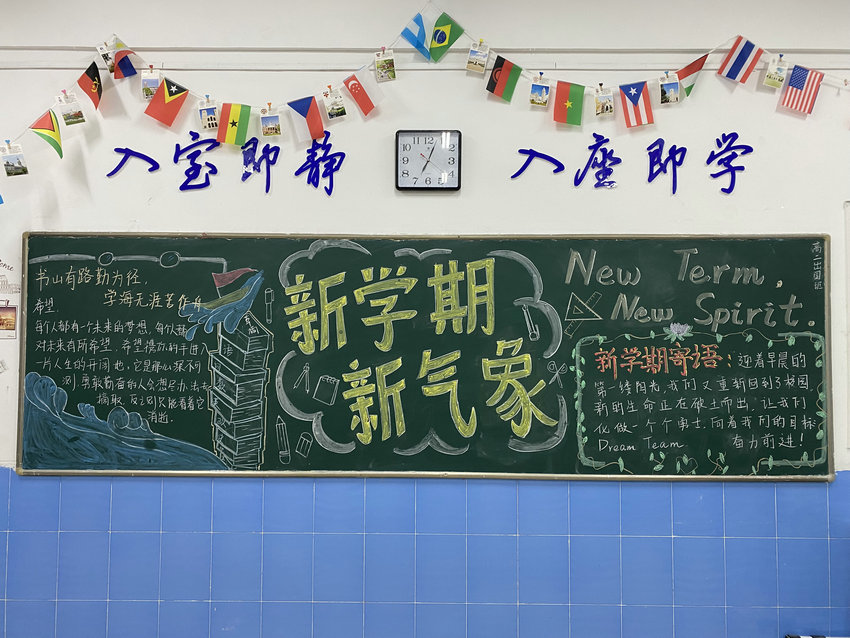 入室即静
入座即学
12
1
2
3
4
5
6
7
8
9
10
11
书山有路勤为径,
学海无涯苦作舟
希望.
每个人都有一个未来的梦想,每个人都
对未来有所希望,希望携你的手进入
一片人生的开阔地,它是那么深不可
测,勇敢勤奋的人会想尽办法去
摘取,反之则只能看着它
消逝.
新学期
新气象
New Term,
New Spirit.
高二出国班
新学期寄语:迎着早晨的
第一缕阳光,我们又重新回到了校园,
新的生命正在破土而出,让我们
化做一个个勇士,向着我们的目标
Dream Team 奋力前进!